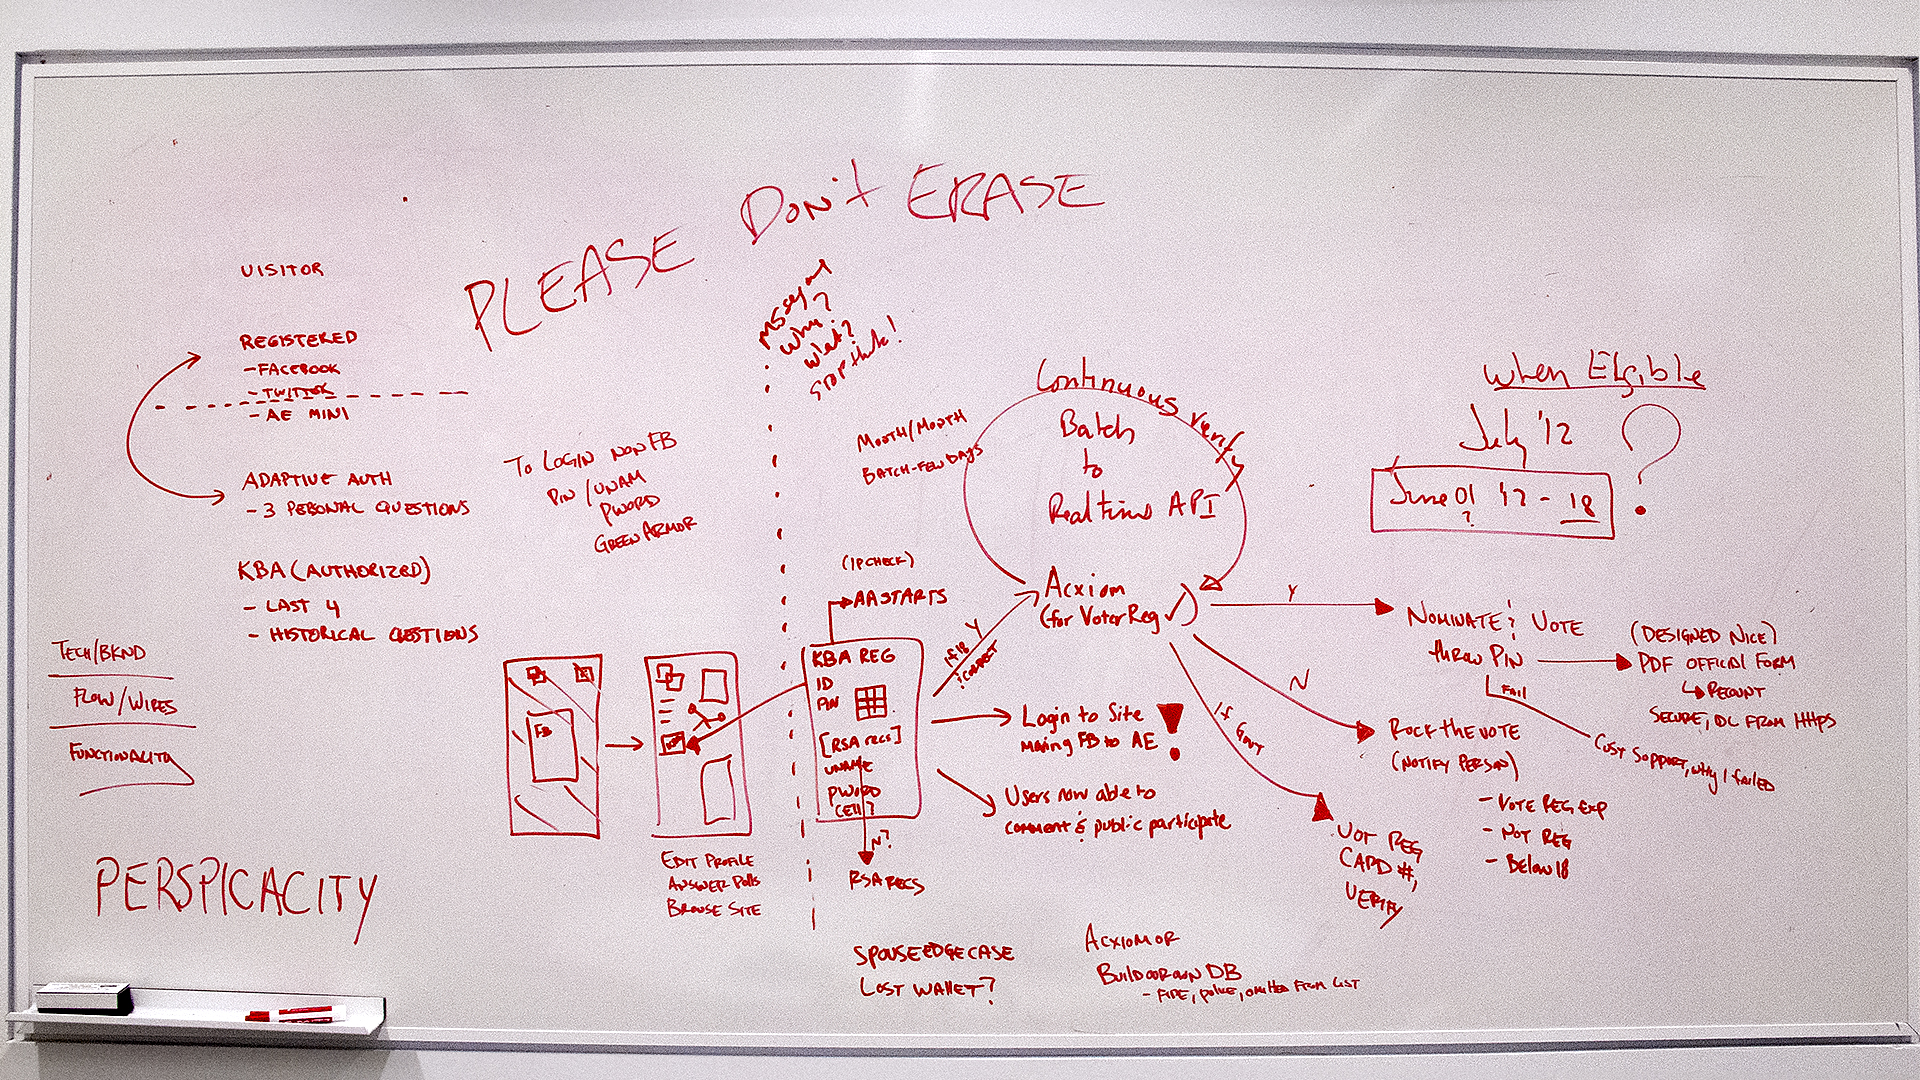 PLEASE DON'T ERASE
VISITOR
REGISTERED
- FACEBOOK
- TWITTER
- AE MINI
ADAPTIVE AUTH
- 3 PERONAL QUESTIONS
KBA (AUTHORIZED)
- LAST 4
- HISTORICAL QUESTIONS
TECH/BKND
FLOW/WIRES
FUNCTIONALITY
PERSPICACITY
TO LOGIN NON FB
PIN/UNAM
PWORD
GREEN ARMOR
why?
what?
STOP think!
MONTH/MONTH
BATCH-FEW DAYS
Continuous verify
Batch
to
Realtime API
(IP CHECK)
AA STARTS
Acxiom
(for Voter Reg ✓)
FB
EDIT PROFILE
ANSWER POLLS
BROWSE SITE
KBA REG
ID
PIN
[RSA RECS]
UNAME
PWORD
CELL?
N?
RSA RECS
If 18 Y
! CORRECT
Login to Site
making FB to AE !
Users now able to
comment & public participate
SPOUSE EDGE CASE
LOST WALLET?
ACXIOM OR
BUILD OUR OWN DB
- FIRE, POLICE, omitted FROM LIST
When Eligible
July '12 ?
June 01 '12 - 18
?
Y
NOMINATE & VOTE
throw PIN
FAIL
(DESIGNED NICE)
PDF OFFICIAL FORM
RECOUNT
SECURE, DL FROM HTTPS
CUST SUPPORT, why I failed
N
ROCK THE VOTE
(NOTIFY PERSON)
- VOTE REG EXP
- NOT REG
- Below 18
If GOVT
VOT REG
CARD #,
VERIFY